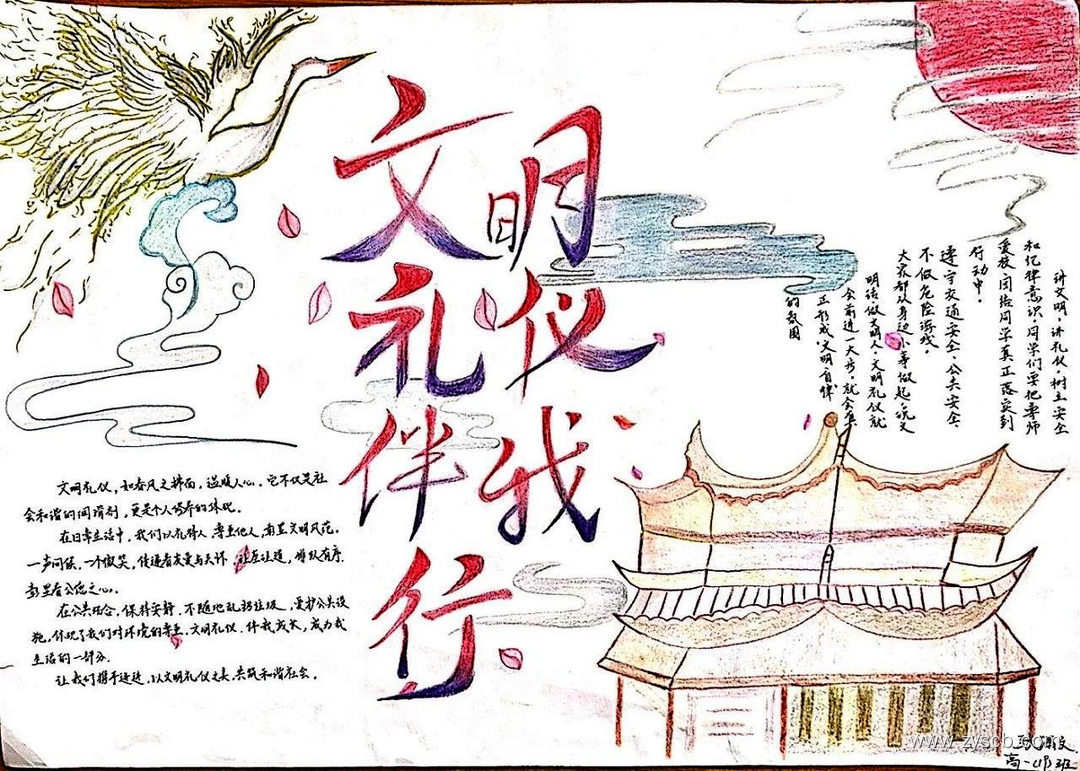 文明
礼仪
伴我
行
讲文明，讲礼仪，树立安全
和纪律意识，同学们要把尊师
爱校，团结同学真正落实到
行动中。
遵守交通安全、公共安全、
不做危险游戏。
大家都从身边小事做起，说文
明话做文明人，文明礼仪就
会前进一大步，就会真
正形成“文明、自律”
的氛围
文明礼仪，如春风之拂面，温暖人心。它不仅是社
会和谐的润滑剂，更是个人修养的体现。
在日常生活中，我们以礼待人，尊重他人，彰显文明风范。
一声问候，一个微笑，传递着友爱与关怀，让道，排队有序，
彰显着公德之心。
在公共场合，保持安静，不随地乱扔垃圾，爱护公共设
施，体现了我们对环境的尊重。文明礼仪，伴我成长，成为我
生活的一部分。
让我们携手迈进，以文明礼仪之光，共筑和谐社会。
高一 班